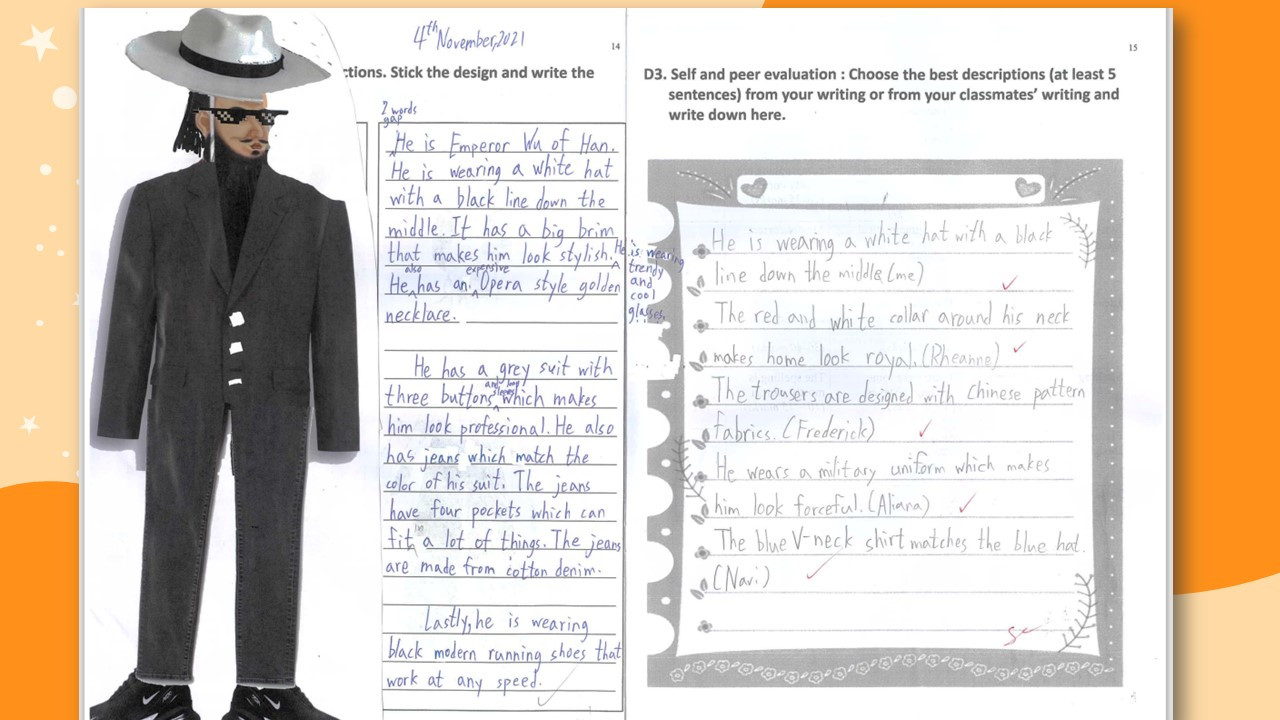 4th November, 2021
14
ctions. Stick the design and write the
2 words
gap
He is Emperor Wu of Han.
He is wearing a white hat
with a black line down the
middle. It has a big brim
that makes him look stylish. He is wearing
trendy
and
cool
glasses.
also expensive
He has an Opera style golden
necklace.
He has a grey suit with
and long
sleeves
three buttons which makes
him look professional. He also
has jeans which match the
color of his suit. The jeans
have four pockets which can
in
fit a lot of things. The jeans
are made from cotton denim.
Lastly, he is wearing
black modern running shoes that
work at any speed.
15
D3. Self and peer evaluation : Choose the best descriptions (at least 5
sentences) from your writing or from your classmates’ writing and
write down here.
He is wearing a white hat with a black
line down the middle (me)
The red and white collar around his neck
makes home look royal. (Rheanne)
The trousers are designed with Chinese pattern
fabrics. (Frederick)
He wears a military uniform which makes
him look forceful. (Aliana)
The blue V-neck shirt matches the blue hat.
(Navi)